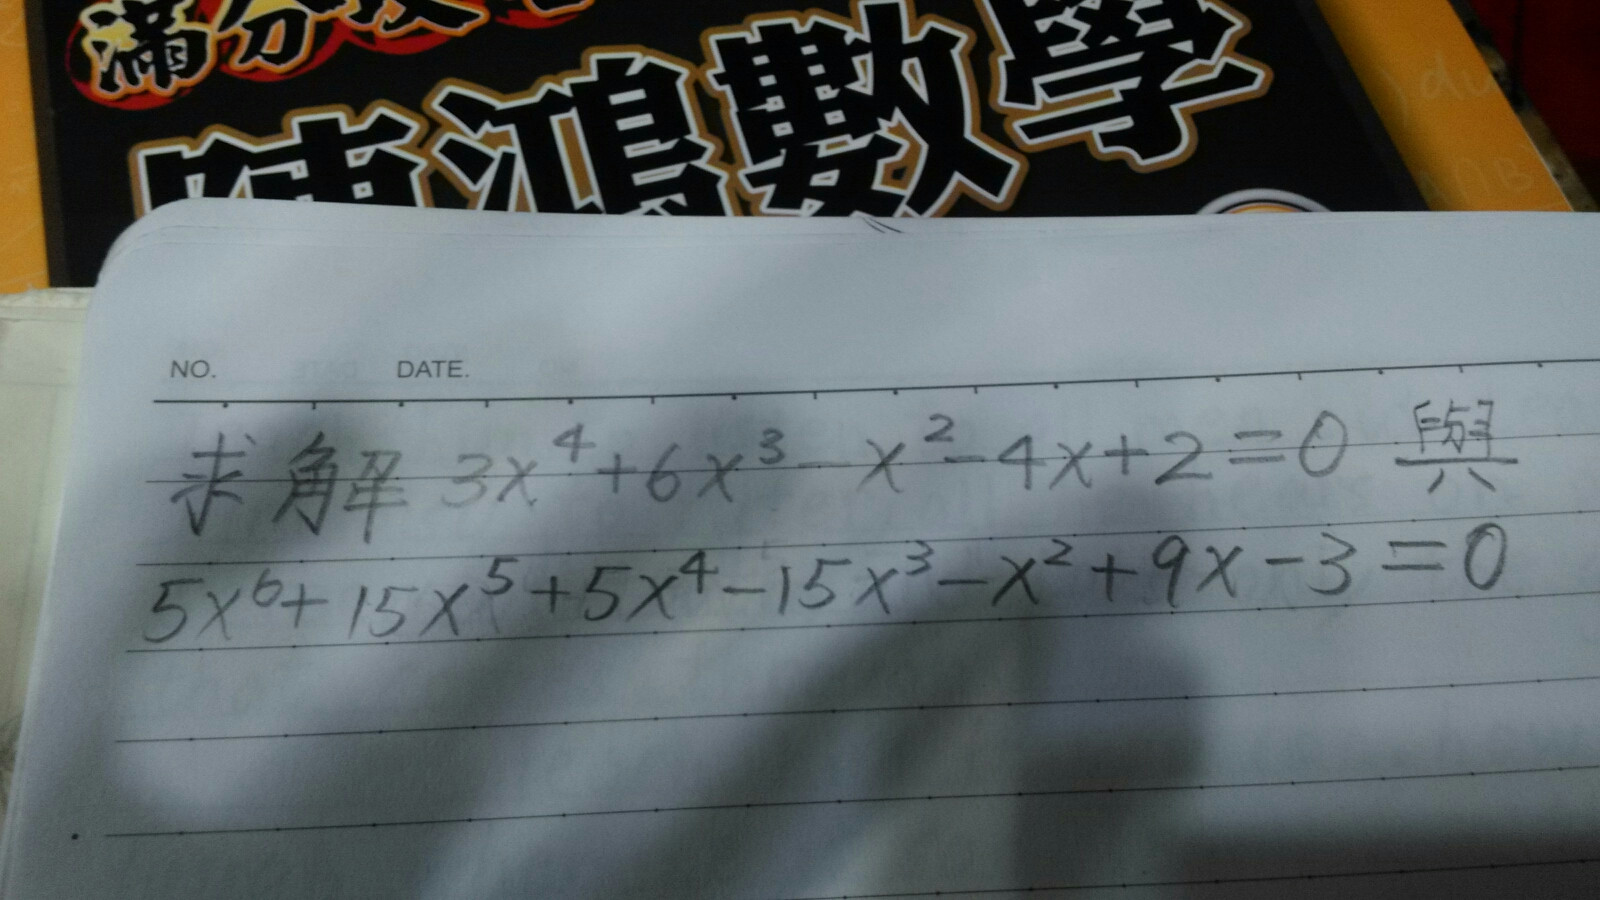 滿分
陳鴻數學
NO. DATE.
求解 3x⁴+6x³-x²-4x+2=0 與
5x⁶+15x⁵+5x⁴-15x³-x²+9x-3=0